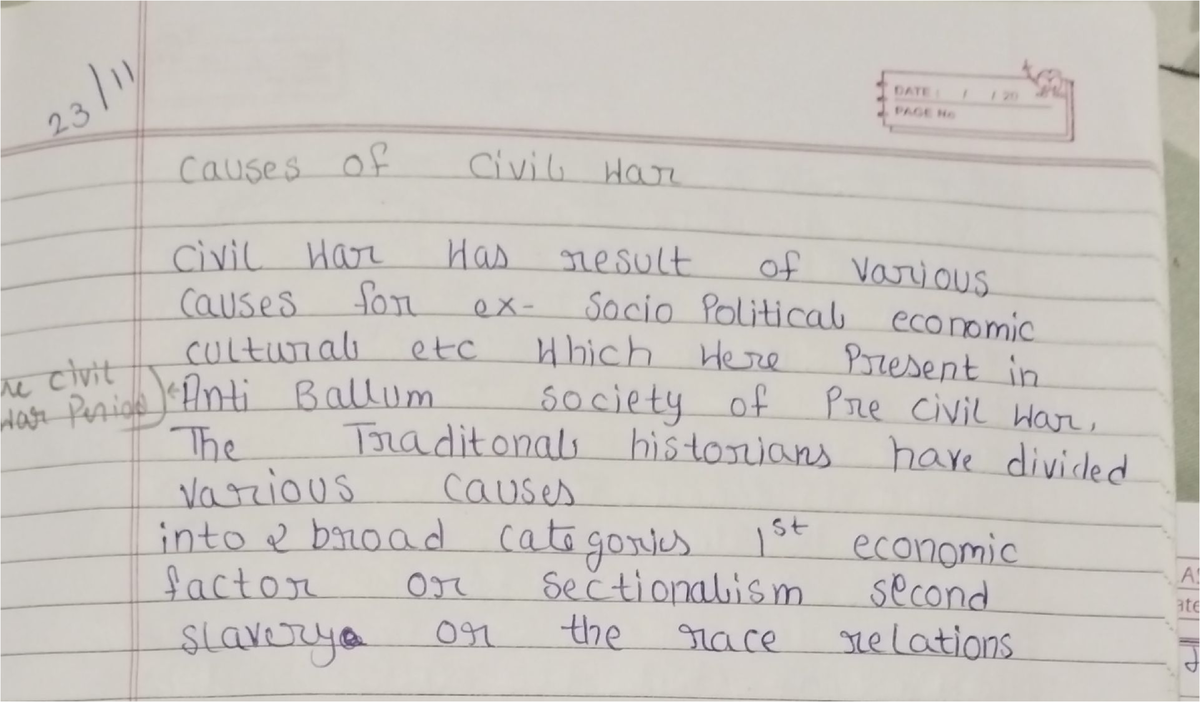 23/11
DATE : / / 20
PAGE No
Causes of Civil War
Civil War Has result of various
Causes for ex- Socio Political economic
cultural etc Which Were Present in
re Civil
War Period
Anti Ballum society of Pre Civil War.
The Traditonal historians have divided
various causes
into 2 broad categories 1st economic
factor or sectionalism second
slavery or the race relations